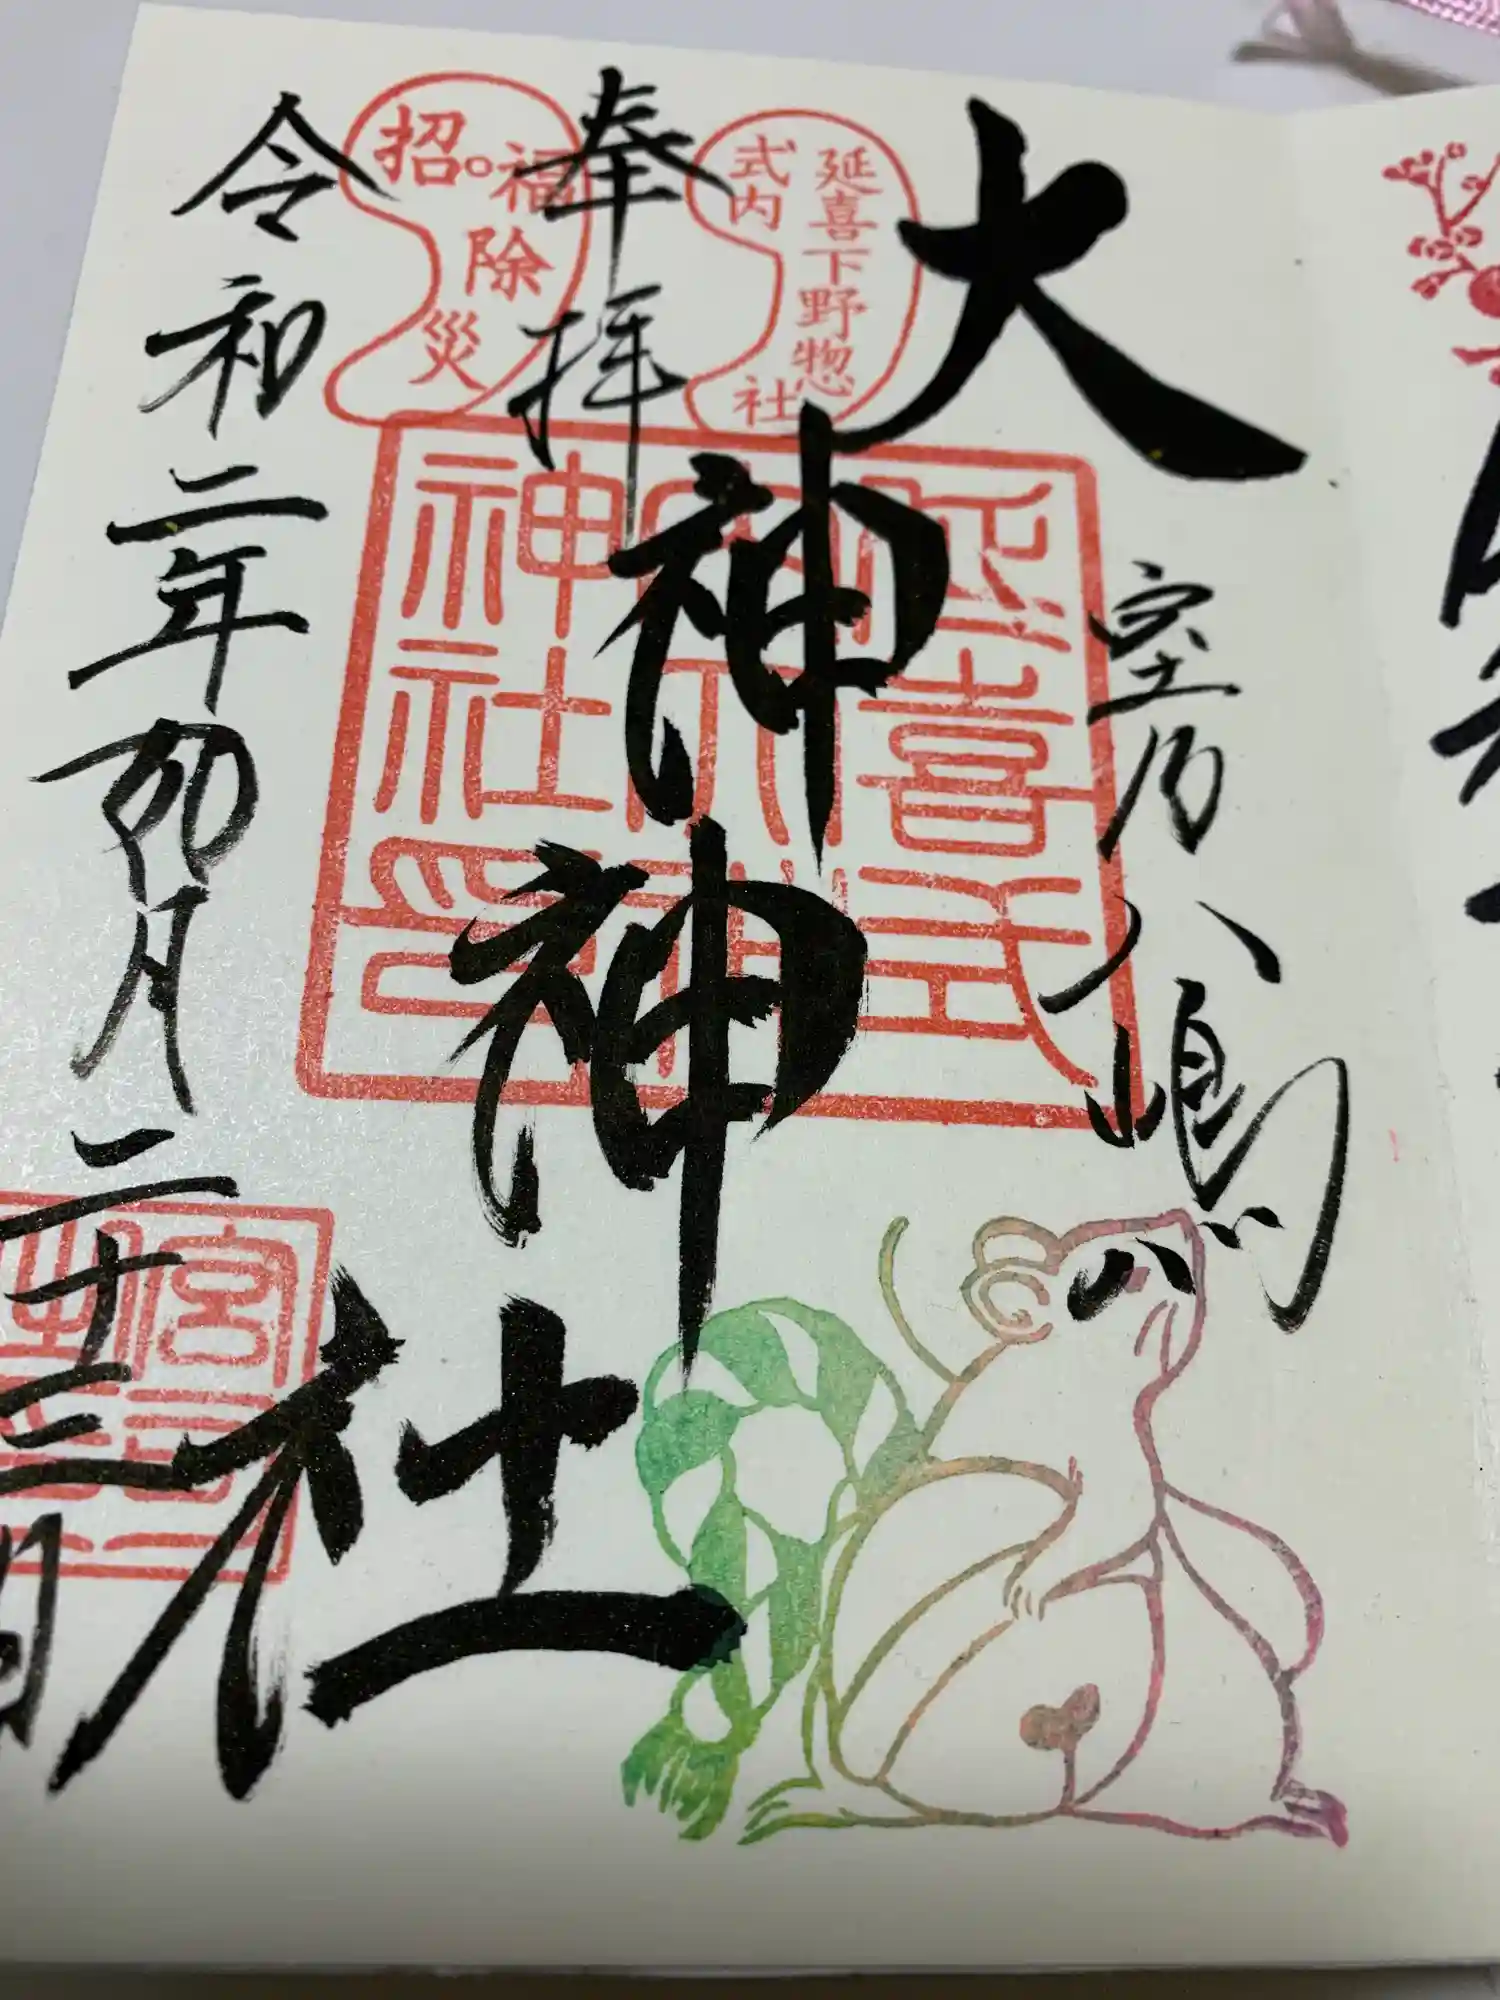 室乃八嶋
大神神社
延喜下野惣社
式内
奉拝
招福除災
令和二年卯月二十三日
延喜式
神社印